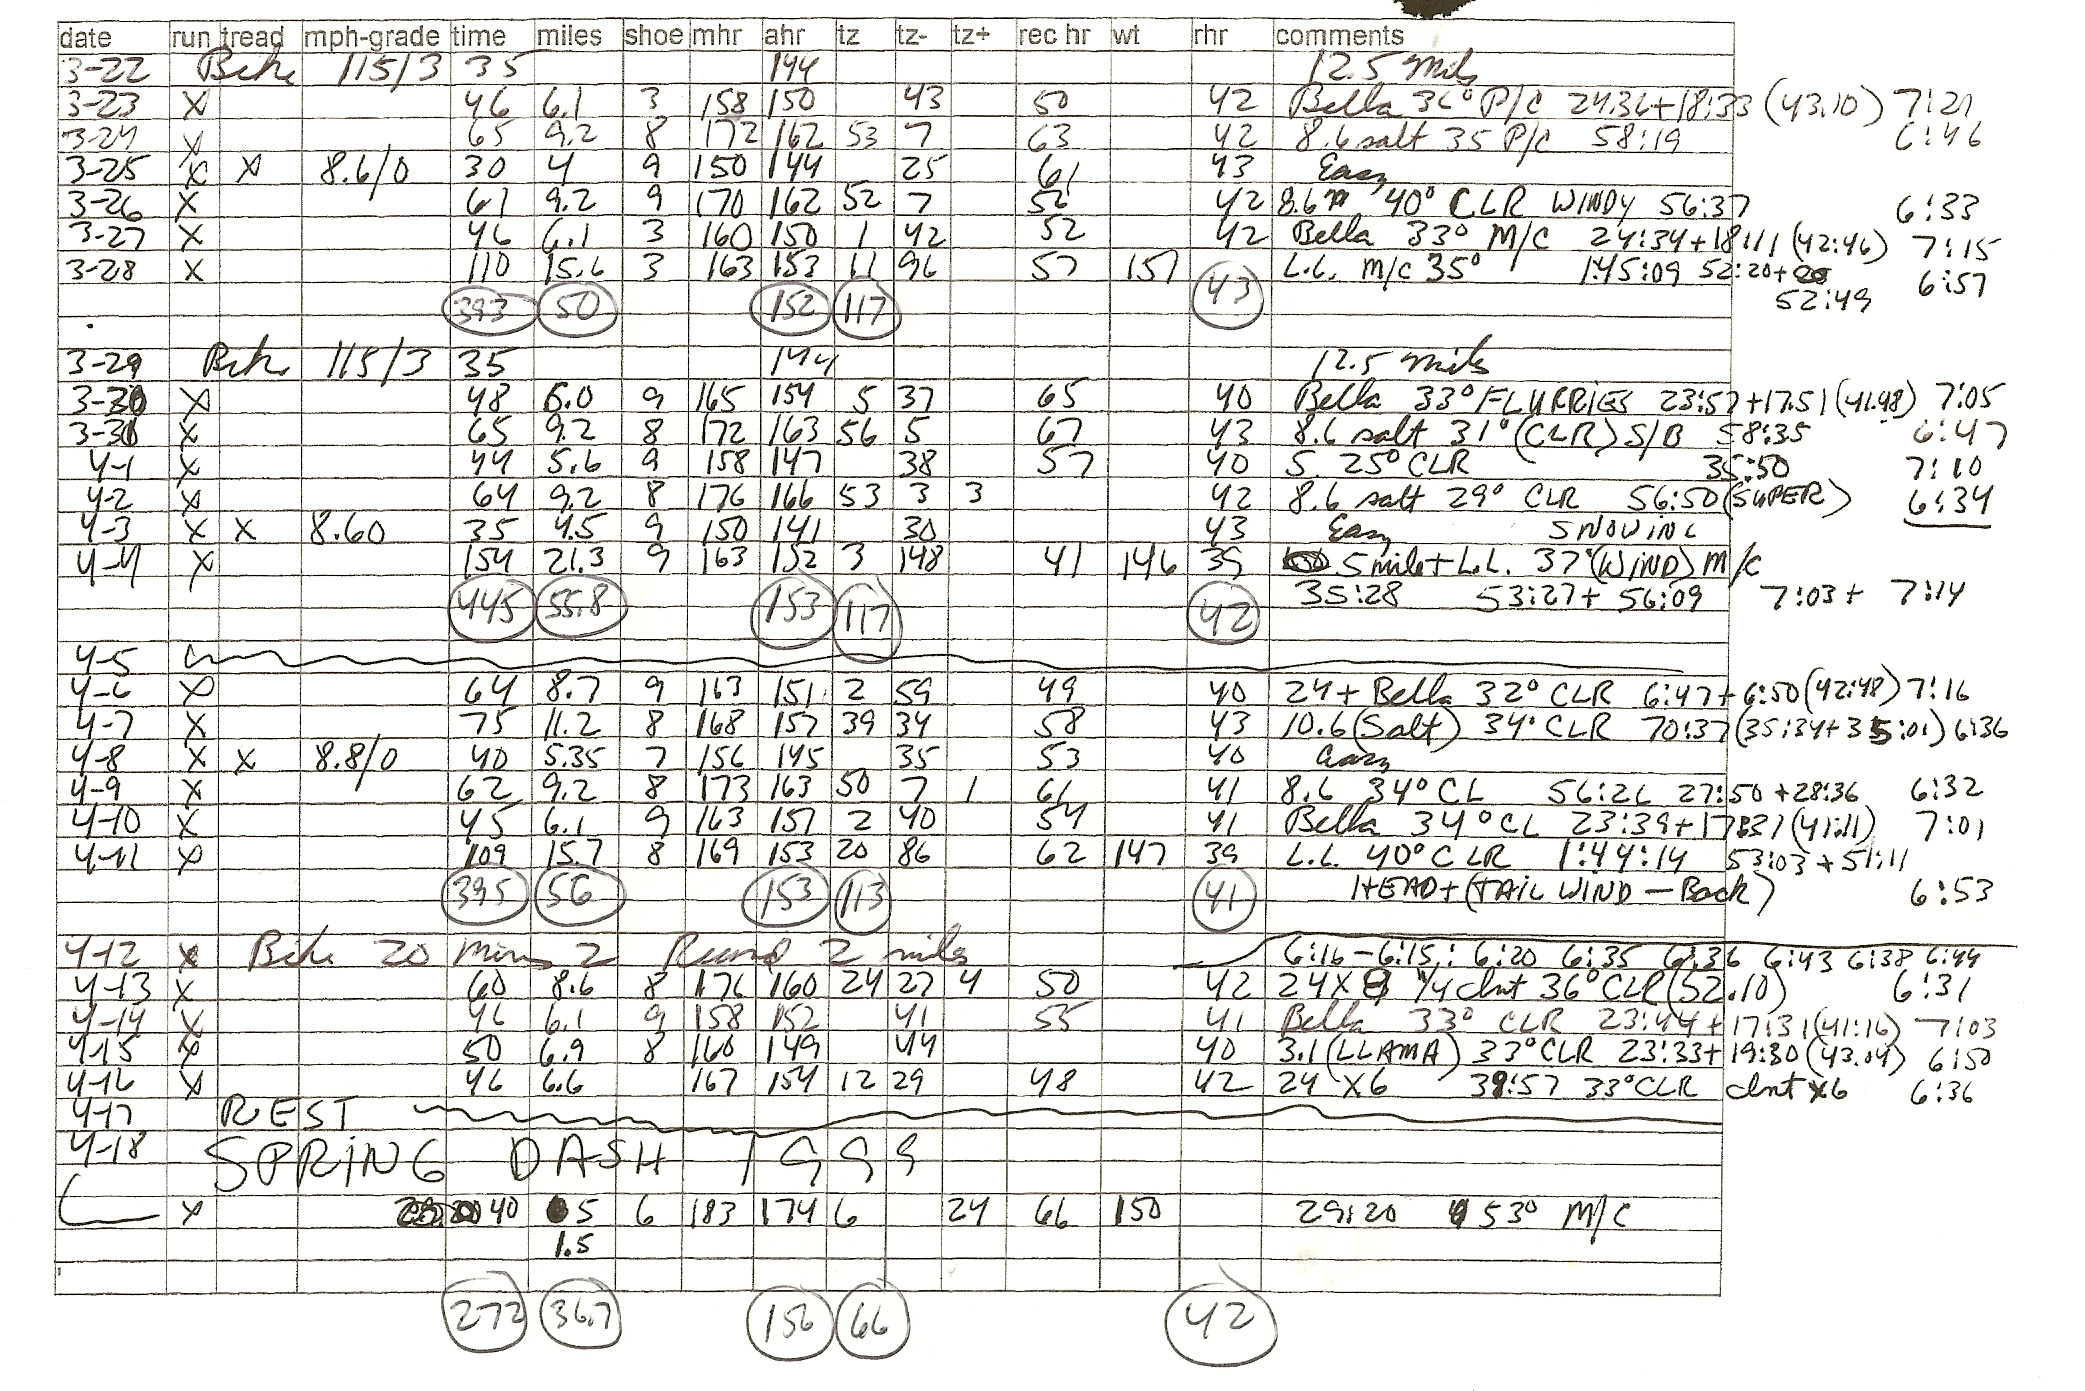 date run tread mph-grade time miles shoe mhr ahr tz tz- tz+ rec hr wt rhr comments
3-22 Bike 115/3 35 144 12.5 miles
3-23 X 46 6.1 3 158 150 43 50 42 Bella 36° P/C 24.36+18:33 (43.10) 7:21
3-24 X 65 9.2 8 172 162 53 7 63 42 8.6 salt 35 P/C 58:19 6:46
3-25 X X 8.6/0 30 4 9 150 144 25 61 43 Easy
3-26 X 61 9.2 9 170 162 52 7 52 42 8.6 40° CLR WINDY 56:37 6:33
3-27 X 46 6.1 3 160 150 1 42 52 42 Bella 33° M/C 24:34+18:11 (42:46) 7:15
3-28 X 110 15.6 3 163 153 11 96 57 157 L.L. M/C 35° 1:45:09 52:20+ 6:57
393 50 152 117 43 52:49
3-29 Bike 115/3 35 144 12.5 miles
3-30 X 48 6.0 9 165 154 5 37 65 40 Bella 33° FLURRIES 23:57+17.51 (41.48) 7:05
3-31 X 65 9.2 8 172 163 56 5 67 43 8.6 salt 31° (CLR) S/B 58:35 6:47
4-1 X 44 5.6 9 158 147 38 57 40 5. 25° CLR 35:50 7:10
4-2 X 64 9.2 8 176 166 53 3 3 42 8.6 salt 29° CLR 56:50 (SUPER) 6:34
4-3 X X 8.60 35 4.5 9 150 141 30 43 Easy SNOWING
4-4 X 154 21.3 9 163 152 3 148 41 146 39 5 mile + L.L. 37° (WIND) M/C
445 55.8 153 117 42 35:28 53:27+ 56:09 7:03+ 7:14
4-5
4-6 X 64 8.7 9 163 151 2 59 49 40 24+ Bella 32° CLR 6:47+6:50 (42:48) 7:16
4-7 X 75 11.2 8 168 157 39 34 58 43 10.6 (Salt) 34° CLR 70:37 (35:34+35:01) 6:36
4-8 X X 8.8/0 40 5.35 7 156 145 35 53 40 easy
4-9 X 62 9.2 8 173 163 50 7 1 61 41 8.6 34° CL 56:26 27:50+28:36 6:32
4-10 X 45 6.1 9 163 157 2 40 54 41 Bella 34° CL 23:39+17:31 (41:11) 7:01
4-11 X 109 15.7 8 169 153 20 86 62 147 39 L.L. 40° CLR 1:44:14 53:03+51:11
395 56 153 113 41 HEAD+(TAIL WIND - Back) 6:53
4-12 X Bike 20 mins 2 Round 2 miles 6:16-6:15: 6:20 6:35 6:36 6:43 6:38 6:44
4-13 X 60 8.6 8 176 160 24 27 4 50 42 24X8 1/4 clnt 36° CLR (52.10) 6:31
4-14 X 46 6.1 9 158 152 41 55 41 Bella 33° CLR 23:44+17:31 (41:16) 7:03
4-15 X 50 6.9 8 160 149 44 40 3.1 (LLAMA) 33° CLR 23:33+19:30 (43.04) 6:50
4-16 X 46 6.6 167 154 12 29 48 42 24 X6 39:57 33° CLR clnt X6 6:36
4-17 REST
4-18 SPRING DASH 1999
X 40 5 6 183 174 6 24 66 150 29:20 53° M/C
1.5
272 36.7 156 66 42